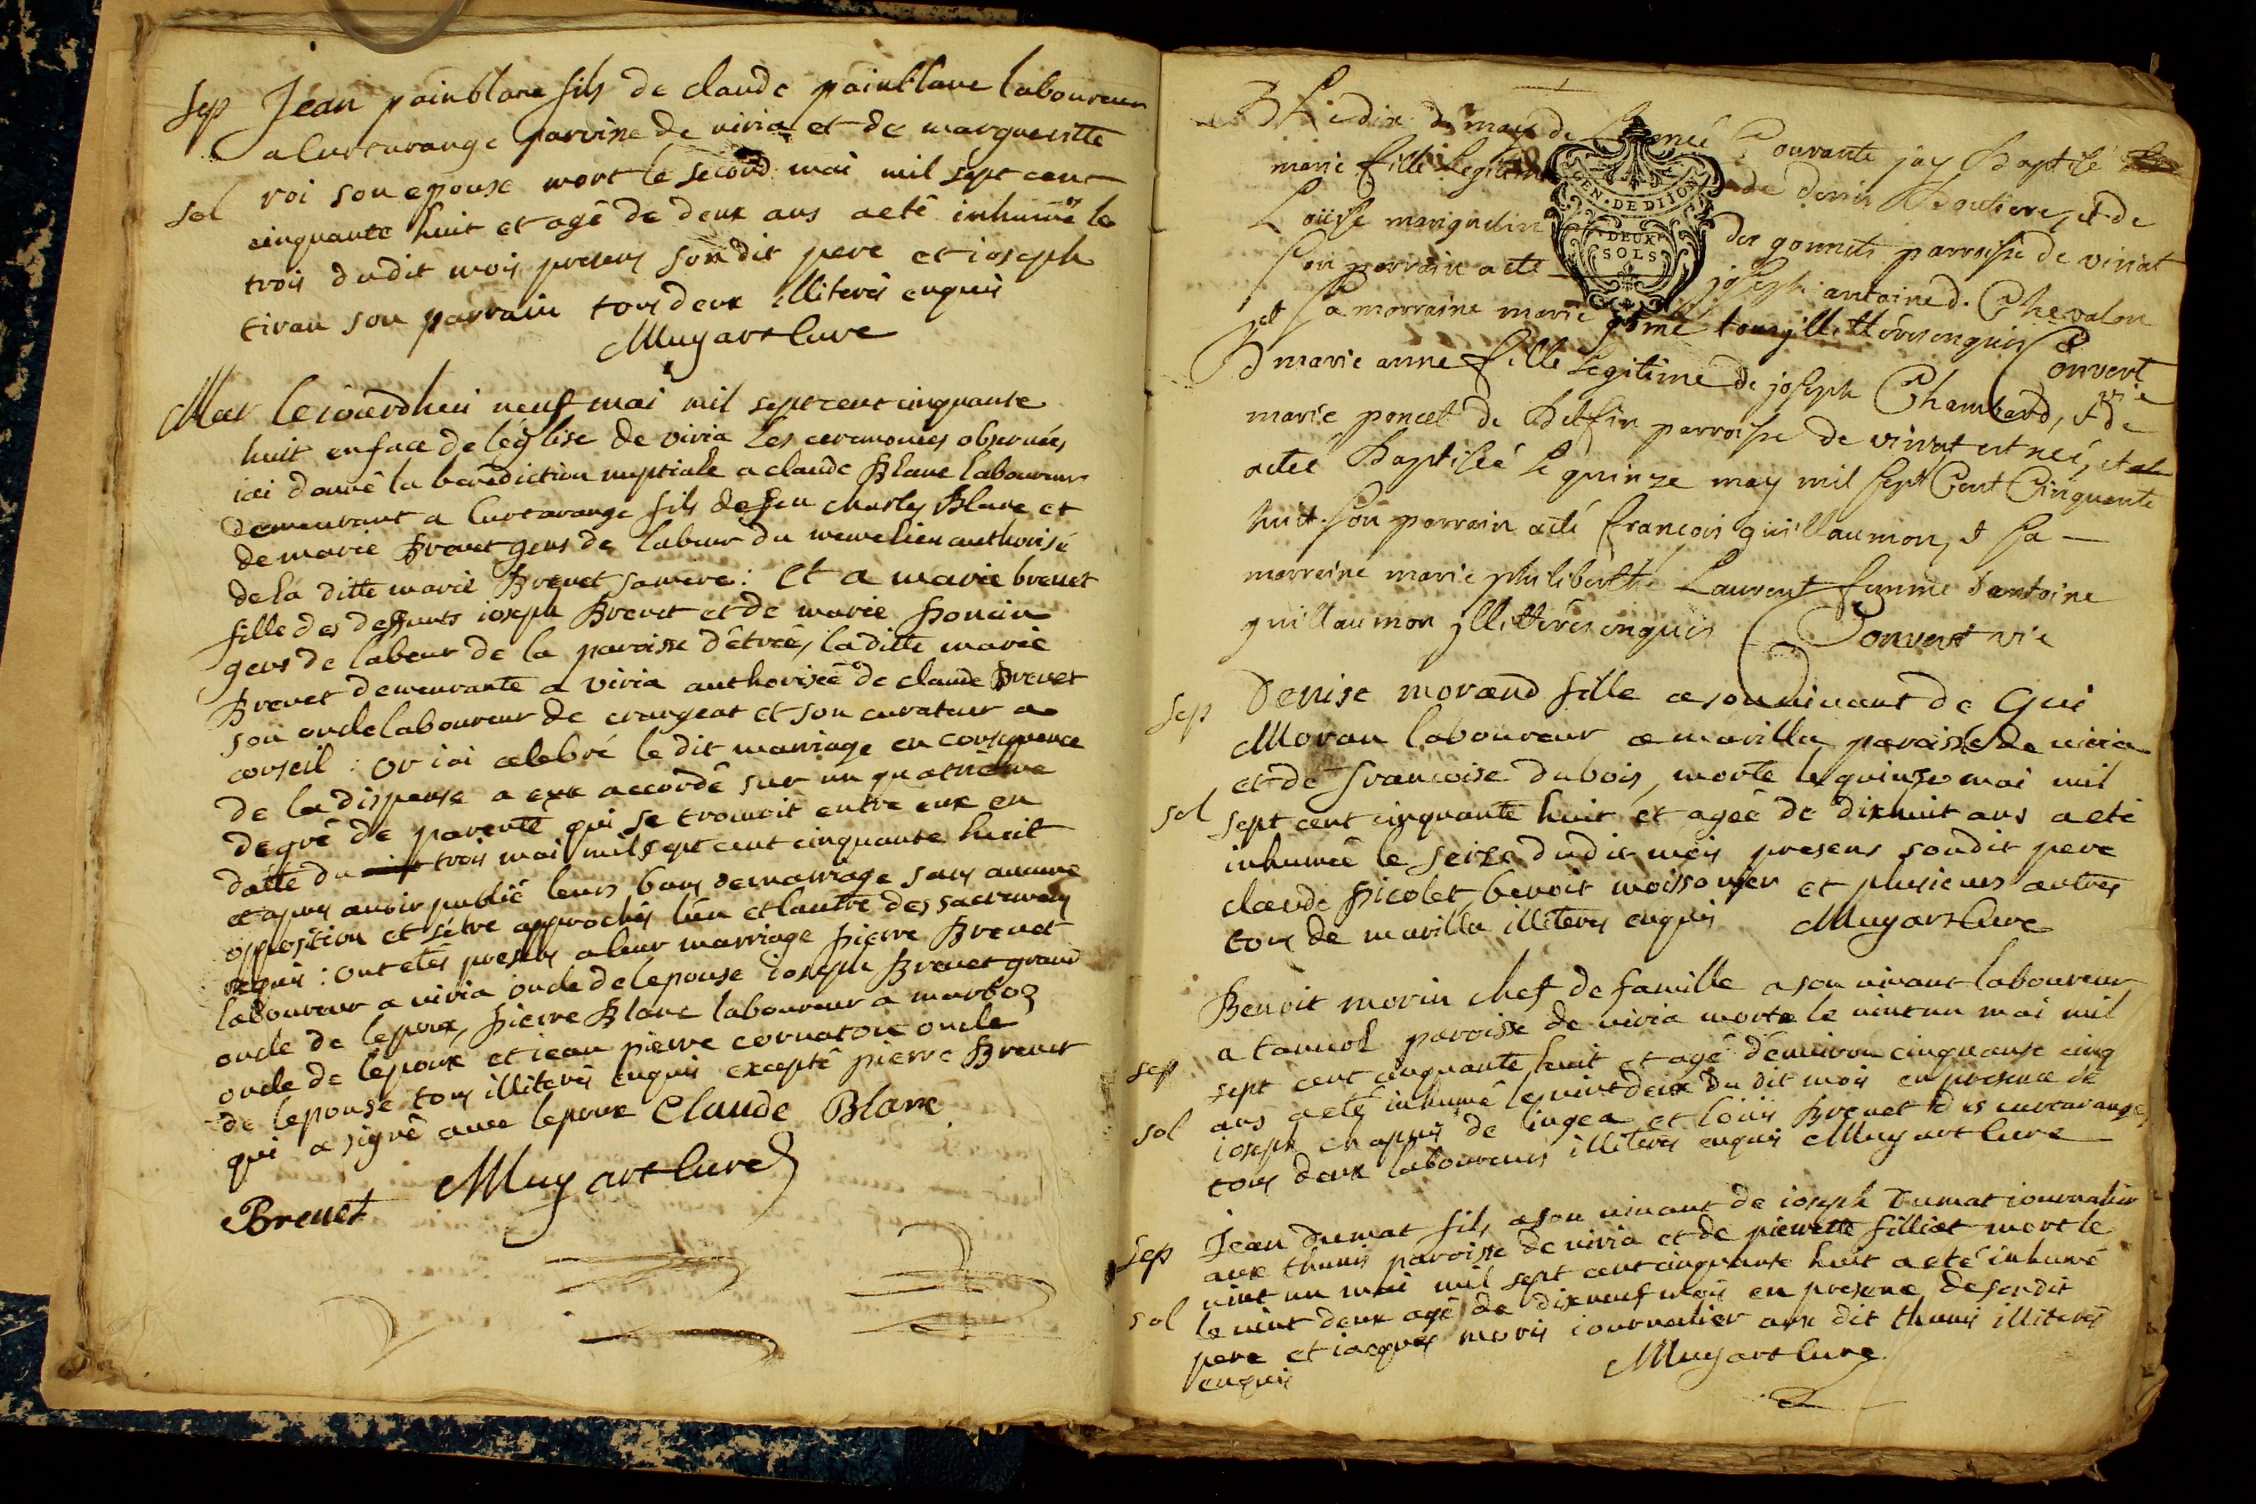 Sep Jean painblanc fils de claude painblanc laboureur
a Curtarange paroisse de viria et de marguerite
sol roi son epouse mort le second mai mil sept cent
cinquante huit et agé de deux ans a eté inhumé le
trois dudit mois presens son dit pere et ioseph
tiran son parrain tous deux illiterés enquis
Muyart Curé
Mar Ceiourdhui neuf mai mil sept cent cinquante
huit en face de l'église de viria les ceremonies observées
iai donné la benediction nuptiale a claude Blanc laboureur
demeurant a Curtarange fils de feu charles Blanc et
de marie Brevet gens de labeur du meme lieu authorisé
de la ditte marie Brevet sa mere : et a marie brevet
fille des deffunts ioseph Brevet et de marie Poncin
gens de labeur de la paroisse d'étréé, la ditte marie
Brevet demeurante a viria authorisée de claude Brevet
son oncle laboureur de crangeat et son curateur a
conseil : or iai celebré le dit marriage en consequence
de la dispense a eux accordé sur un quatrieme
degré de parenté qui se trouvoit entre eux en
datte du trois mai mil sept cent cinquante huit
et apres avoir publié leurs bans de marriage sans aucune
opposition et s'étre approchés l'un et l'autre des sacremens
requis : ont etés presens a leur marriage pierre Brevet
laboureur a viria oncle de lepouse ioseph Brevet grand
oncle de lepoux, pierre Blanc laboureur a marboz
oncle de lépoux et iean pierre cornaton oncle
de lepouse tous illiterés enquis excepté pierre Brevet
qui a signé avec lepoux Claude Blanc
Brevet Muyart Curé
B Le dix de may de L'année Courante jay Baptisé
marie fille Legitime de denis Boutiere, et de
Loüise marguelin des gonnets parroisse de viriat
Son parrain a eté joseph antoine d. Chevalon
et Sa marraine marie tous jllittérés enquis Convert
vic
B marie anne fille Legitime de joseph Chambard, et de
marie poncet de Delfin parroisse de viriat est neé, et a
eteé Baptiseé le quinze may mil Sept Cent Cinquante
huit. Son parrain a eté francois guillaumon, et Sa
marraine marie philiberthe Laurent femme d'antoine
guillaumon jllittérés enquis Convert vic
Sep Denise morand fille a son vivant de Gui
Moran laboureur a marilla paroisse de viria
et de francoise dubois, morte le quinse mai mil
sol sept cent cinquante huit et agée de dixhuit ans a eté
inhumée le seize dudit mois presens sondit pere
claude picolet benoit moissonier et plusieurs autres
tous de marilla illiterés enquis Muyart Curé
Benoit morin chef de famille a son vivant laboureur
a tamisol paroisse de viria mort le vint un mai mil
sep sept cent cinquante huit et agé d'environ cinquante cinq
ans a eté inhumé le vint deux du dit mois en presence de
sol ioseph chapuis de lingea et loüis Brevet des curtaranges
tous deux laboureurs illiterés enquis Muyart Curé
Sep Jean Dumat fils a son vivant de ioseph Dumat iournalier
aux thunis paroisse de viria et de pierrette filliat mort le
vint un mai mil sept cent cinquante huit a eté inhumé
sol le vint deux agé de dixneuf mois en presence de son dit
pere et iacques moris iournalier aux dit thunis illiterés
enquis Muyart Curé
GEN. DE DIION
DEUX
SOLS